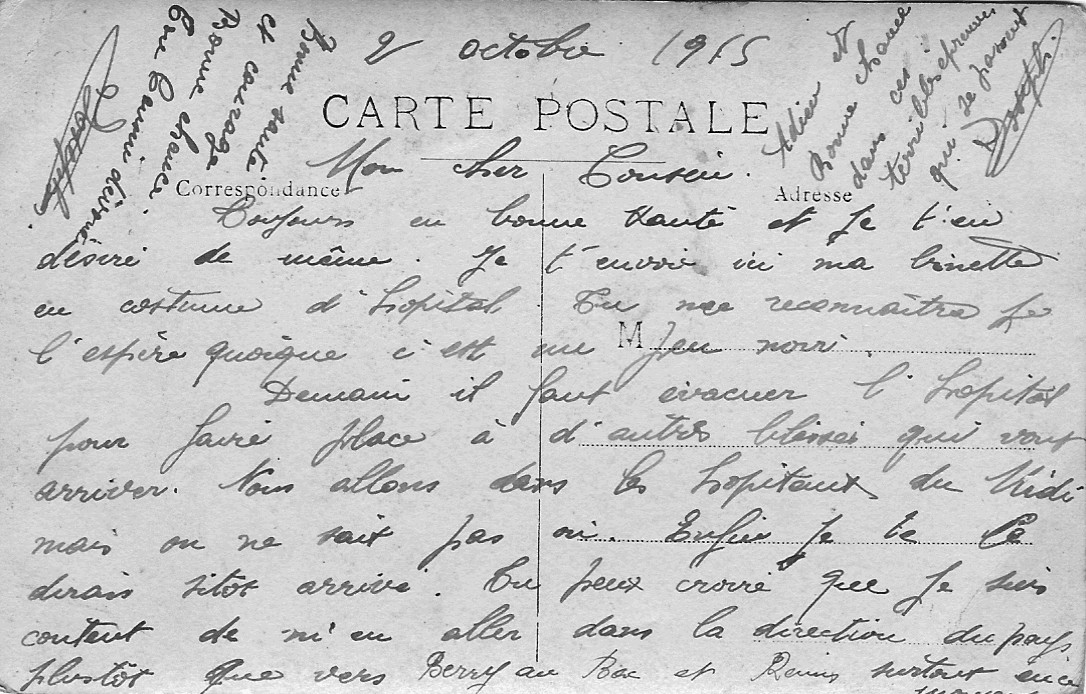 2 octobre 1915
CARTE POSTALE
Correspondance
Adresse
M
Mon cher Cousin.
Toujours en bonne santé et je t'en
désire de même. Je t'envoie ici ma binette
en costume d'hopital. Tu me reconnaîtra je
l'espère quoique c'est un peu noir.
Demain il faut évacuer l'hopital
pour faire place à d'autres blessés qui vont
arriver. Nous allons dans les hopitaux du Midi
mais on ne sait pas où. Enfin je te le
dirais sitôt arrivé. Tu peux croire que je suis
content de m'en aller dans la direction du pays
plustôt que vers Berry au Bac et Reims surtout en ce
Ton Cousin dévoué
Bonne chance
et courage
Bonne santé
Joseph
Adieu et
Bonne chance
dans ces
terribles épreuves
qui se passent
Joseph.